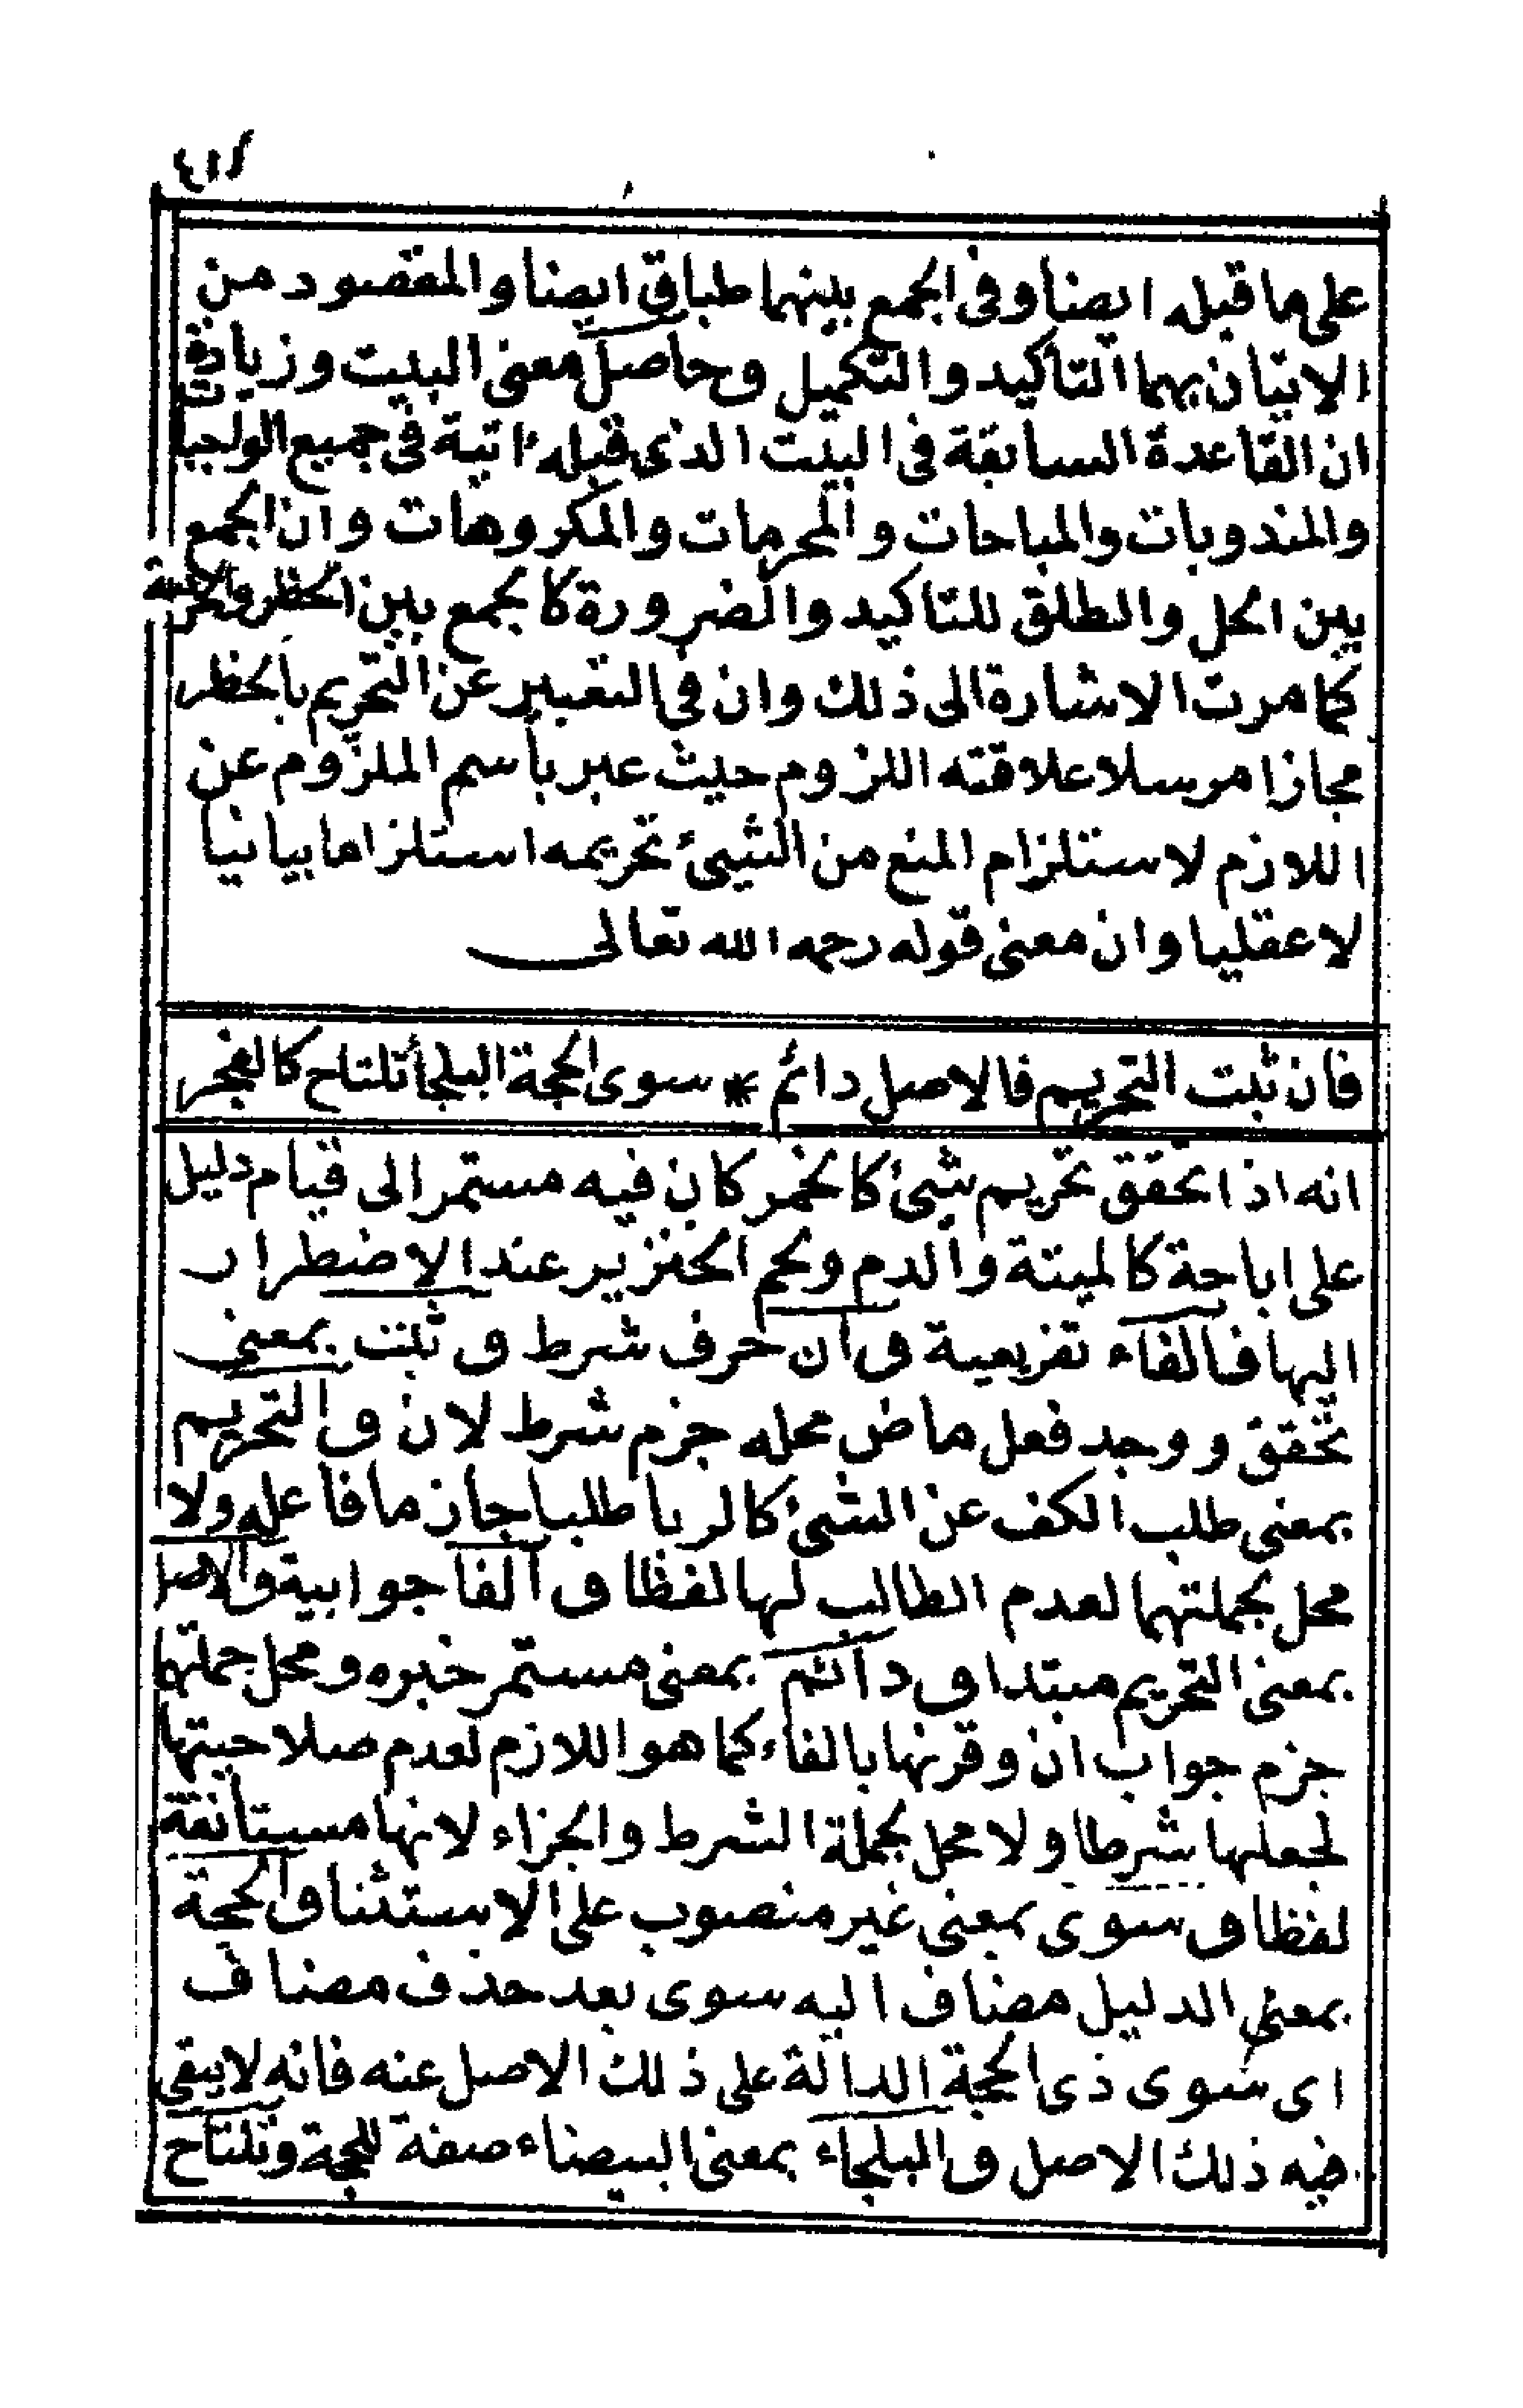 على ما قبله ايضا وفى الجمع بينهما طباق ايضا والمقصود من
الاتيان بهما التاكيد والتكميل وحاصل معنى البيت وزيادة
ان القاعدة السابقة فى البيت الذى قبله ءاتية فى جميع الواجبات
والمندوبات والمباحات والمحرمات والمكروهات وان الجمع
بين الحل والطلق للتاكيد والضرورة كالجمع بين الحظر والحرمة
كما مرت الاشارة الى ذلك وان فى التعبير عن التحريم بالحظر
مجازا مرسلا علاقته اللزوم حيث عبر باسم الملزوم عن
اللازم لاستلزام المنع من الشيئ تحريمه استلزاما بيانيا
لا عقليا وان معنى قوله رحمه الله تعالى
فان ثبت التحريم فالاصل دائم * سوى الحجة البلجا تلتاح كالفجر
انه اذا تحقق تحريم شيئ كالخمر كان فيه مستمر الى قيام دليل
على اباحة كالميتة والدم ولحم الخنزير عند الاضطرار
اليها فالفاء تفريعية و ان حرف شرط و ثبت بمعنى
تحقق ووجد فعل ماض محله جزم شرط لان و التحريم
بمعنى طلب الكف عن الشيئ كالربا طلبا جازما فاعله ولا
محل بجملتهما لعدم الطالب لها لفظا و الفا جوابية والاصل
بمعنى التحريم مبتدا و دائم بمعنى مستمر خبره ومحل جملتها
جزم جواب ان وقرنها بالفاء كما هو اللازم لعدم صلاحيتها
لجعلها شرطا ولا محل بجملة الشرط والجزاء لانها مستانفة
لفظا و سوى بمعنى غير منصوب على الاستثنا و الحجة
بمعنى الدليل مضاف اليه سوى بعد حذف مضاف
اى سوى ذى الحجة الدالة على ذلك الاصل عنه فانه لا يبقى
فيه ذلك الاصل و البلجاء بمعنى البيضاء صفة للحجة وتلتاح